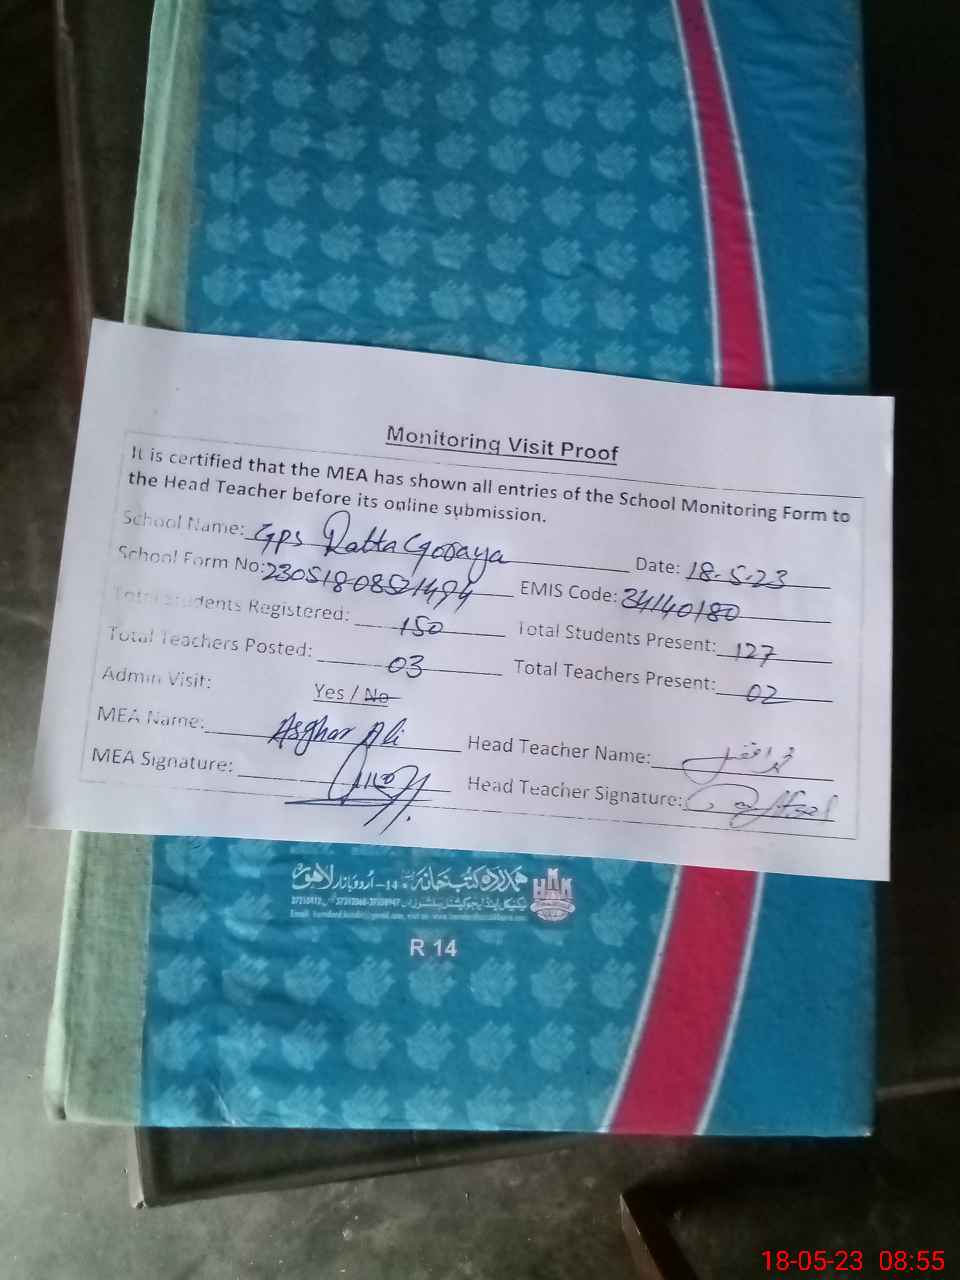 Monitoring Visit Proof
It is certified that the MEA has shown all entries of the School Monitoring Form to
the Head Teacher before its online submission.
School Name: GPS Ratta Goraya Date: 18-5-23
School Form No: EMIS Code: 34140180
Total Students Registered: 150 Total Students Present: 127
Total Teachers Posted: 03 Total Teachers Present: 02
Admin Visit: Yes / No
MEA Name: Asghar Ali Head Teacher Name: محمد افضل
MEA Signature: Head Teacher Signature:
ہمدرد کتب خانہ 14-اردو بازار لاہور
R 14
18-05-23 08:55